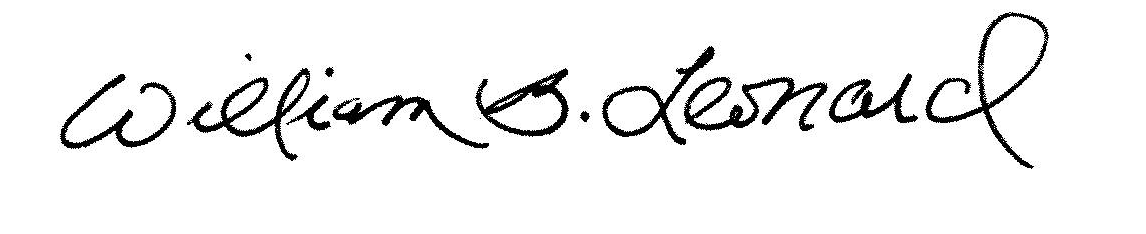 William B. Leonard